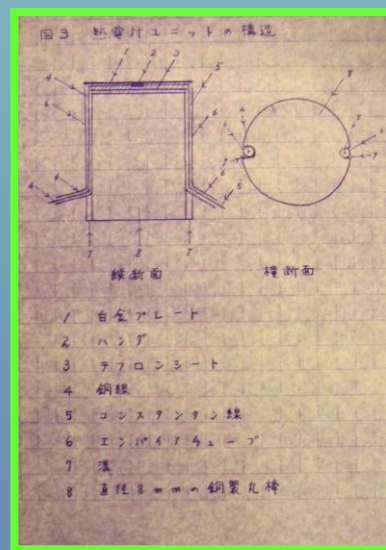 図3 熱電対ユニットの構造
1 2 3
4 5
6 6
8
縦断面 横断面
1 白金プレート
2 ハンダ
3 テフロンシート
4 銅線
5 コンスタンタン線
6 エンパイアチューブ
7 溝
8 直径8mmの銅製丸棒